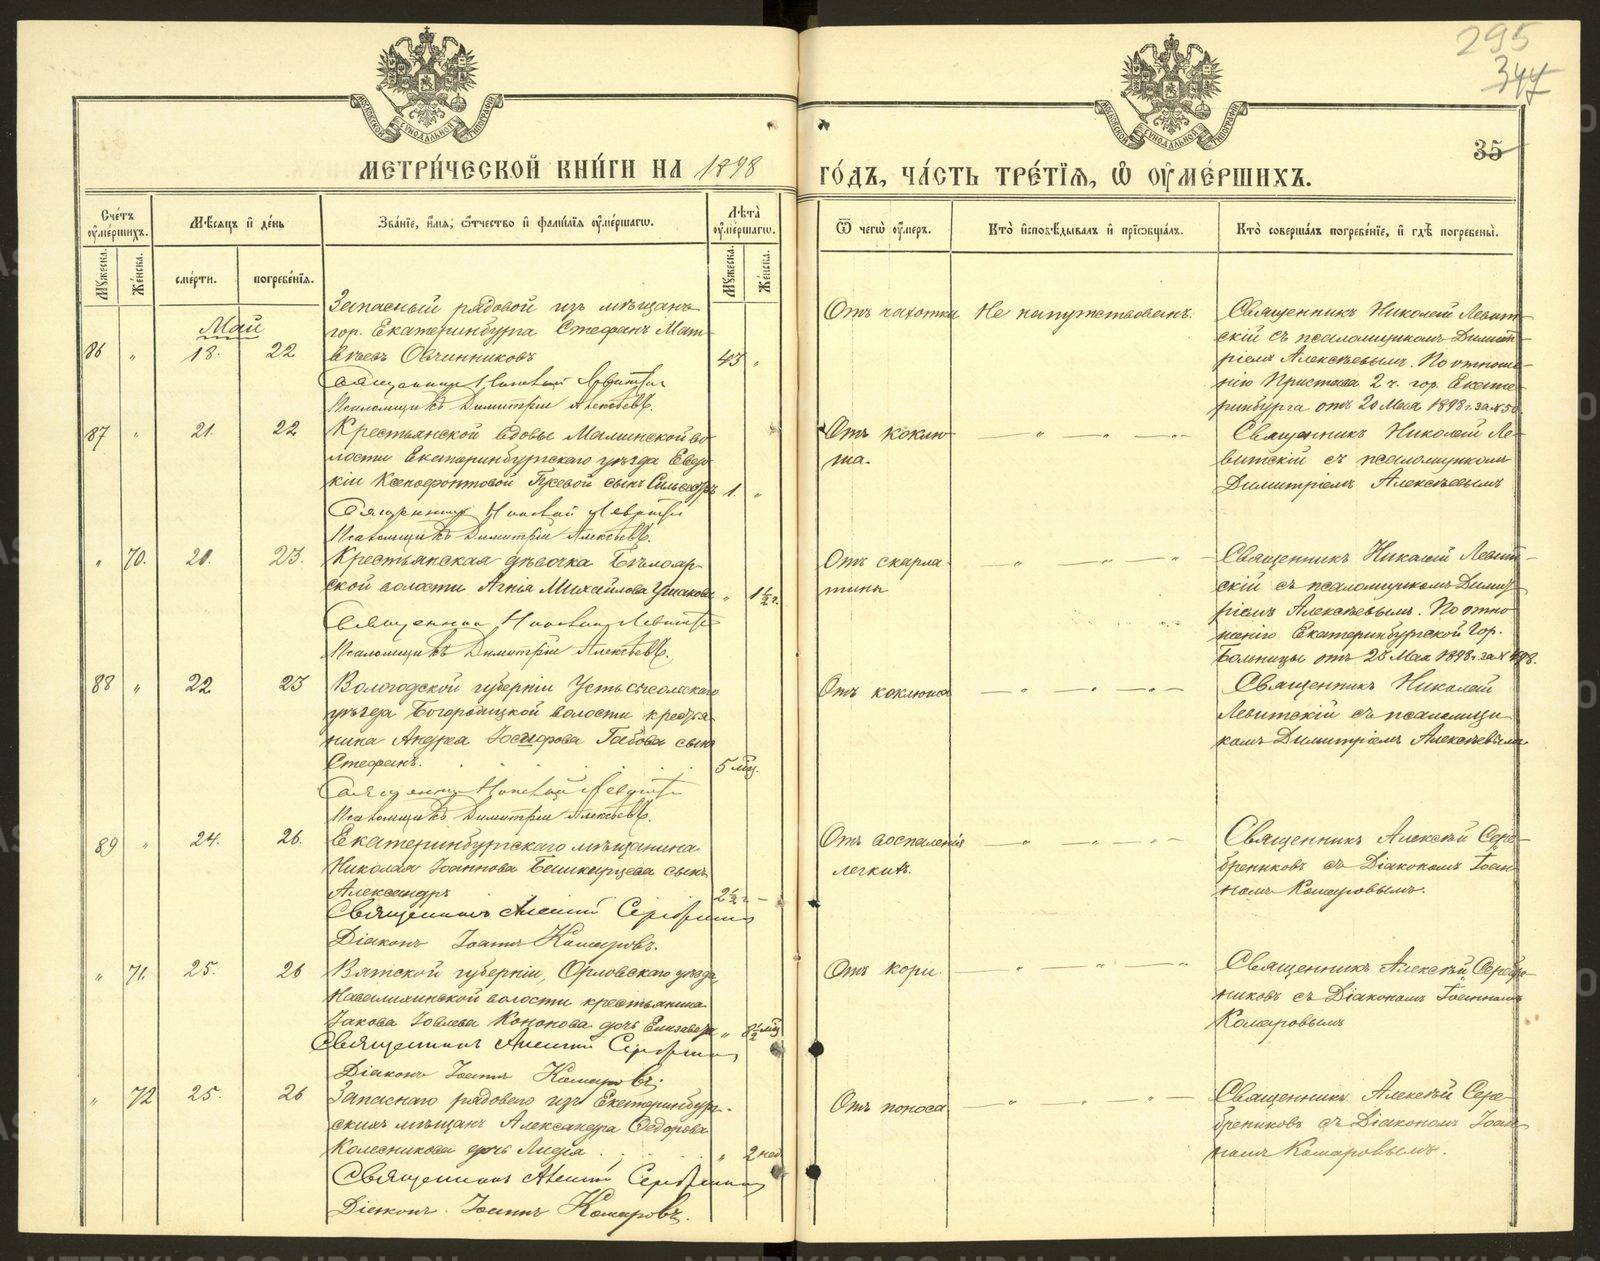 295
344
35
МОСКОВСКОЙ СѴНОДАЛЬНОЙ ТИПОГРАФІИ
МОСКОВСКОЙ СѴНОДАЛЬНОЙ ТИПОГРАФІИ
МЕТРИ́ЧЕСКОЙ КНИ́ГИ НА 1898 ГО́ДЪ, ЧА́СТЬ ТРЕ́ТІѦ, Ѡ ОУМЕ́РШИХЪ.
Сче́тъ оумéршихъ.
Мꙋжеска.
Же́нска.
Мѣ́сяцъ и де́нь
сме́рти.
погребе́нїя.
Зва́нїе, и́мя, ѻ́тчество и фами́лїя оуме́ршагѡ.
Лѣта̀ оуме́ршагѡ.
Мꙋжеска.
Же́нска.
Ѿ чегѡ̀ оу́меръ.
Кто̀ исповѣ́дывалъ и прїѡбща́лъ.
Кто̀ соверша́лъ погребе́нїе, и гдѣ̀ погребены̀.
Май
86 " 18. 22
Запасный рядовой изъ мѣщанъ
гор. Екатеринбурга Стефанъ Мат-
вѣевъ Овчинниковъ
43 "
Священникъ Николай Левитскій
Псаломщикъ Димитрій Алексѣевъ.
Отъ чахотки
Не напутствованъ.
Священникъ Николай Левит-
скій съ псаломщикомъ Димит-
ріемъ Алексѣевымъ. По отноше-
нію Пристава 2 ч. гор. Екате-
ринбурга отъ 20 Мая 1898 г. за №
87 " 21. 22
Крестьянской вдовы Маминской во-
лости Екатеринбургскаго уѣзда Евдо-
кіи Ксенофонтовой Гусевой сынъ Сильвестръ
1. "
Священникъ Николай Левитскій
Псаломщикъ Димитрій Алексѣевъ.
Отъ коклю-
ша.
— " — " — " —
Священникъ Николай Ле-
витскій съ псаломщикомъ
Димитріемъ Алексѣевымъ
" 70. 20. 23.
Крестьянская дѣвочка Бѣлояр-
ской волости Агнія Михайлова Ушакова
" 1½ г.
Священникъ Николай Левитскій
Псаломщикъ Димитрій Алексѣевъ.
Отъ скарла-
тины
— " — " — " —
Священникъ Николай Левит-
скій съ псаломщикомъ Димит-
ріемъ Алексѣевымъ. По отно-
шенію Екатеринбургской Гор.
Больницы отъ Мая 1898 г. за №
88 " 22 23
Вологодской губерніи Устьсысольскаго
уѣзда Богородицкой волости крестья-
нина Андрея Іосифова Габова сынъ
Стефанъ.
5 мѣц.
Священникъ Николай Левитскій
Псаломщикъ Димитрій Алексѣевъ.
Отъ коклюша
— " — " — " —
Священникъ Николай
Левитскій съ псаломщи-
комъ Димитріемъ Алексѣевымъ
89 " 24. 26.
Екатеринбургскаго мѣщанина
Николая Іоаннова Башкирцева сынъ
Александръ
2½ г. —
Священникъ Алексій Серебренниковъ
Діаконъ Іоаннъ Комаровъ.
Отъ воспаленія
легкихъ.
— " — " — " —
Священникъ Алексѣй Сере-
брениковъ съ Діакономъ Іоан-
номъ Комаровымъ.
" 71. 25. 26
Вятской губерніи, Орловскаго уѣзда,
волости крестьянина
Іакова Іовлева Кононова дочь Елизавета
" 8½ мѣц
Священникъ Алексій Серебренниковъ
Діаконъ Іоаннъ Комаровъ.
Отъ кори
— " — " — " —
Священникъ Алексѣй Серебре-
никовъ съ Діакономъ Іоанномъ
Комаровымъ
" 72 25. 26
Запаснаго рядового изъ Екатеринбург-
скихъ мѣщанъ Александра Ѳедорова
Колесникова дочь Лидія
" 2 нед.
Священникъ Алексій Серебренниковъ
Діаконъ Іоаннъ Комаровъ.
Отъ поноса
— " — " — " —
Священникъ Алексѣй Сере-
брениковъ съ Діакономъ Іоан-
номъ Комаровымъ.